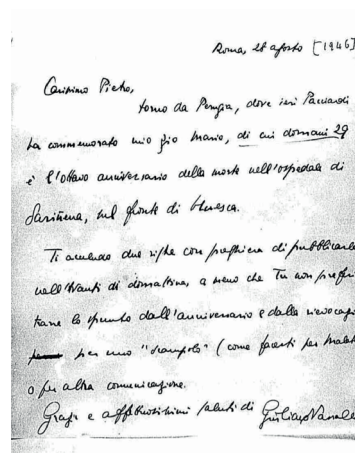 Roma, 28 agosto [1946]
Carissimo Pietro,
torno da Perugia, dove ieri Pacciardi
ha commemorato mio zio Mario, di cui domani 29
è l'ottavo anniversario della morte nell'ospedale di
Sariñena, sul fronte di Huesca.
Ti accludo due righe con preghiera di pubblicarle
nell'Avanti di domattina, a meno che Tu non prefer
trarre lo spunto dall'anniversario e dalla rievocaz
per uno "scampolo" (come facesti per
o per altra comunicazione.
Grazie e affettuosissimi saluti di Giuliano